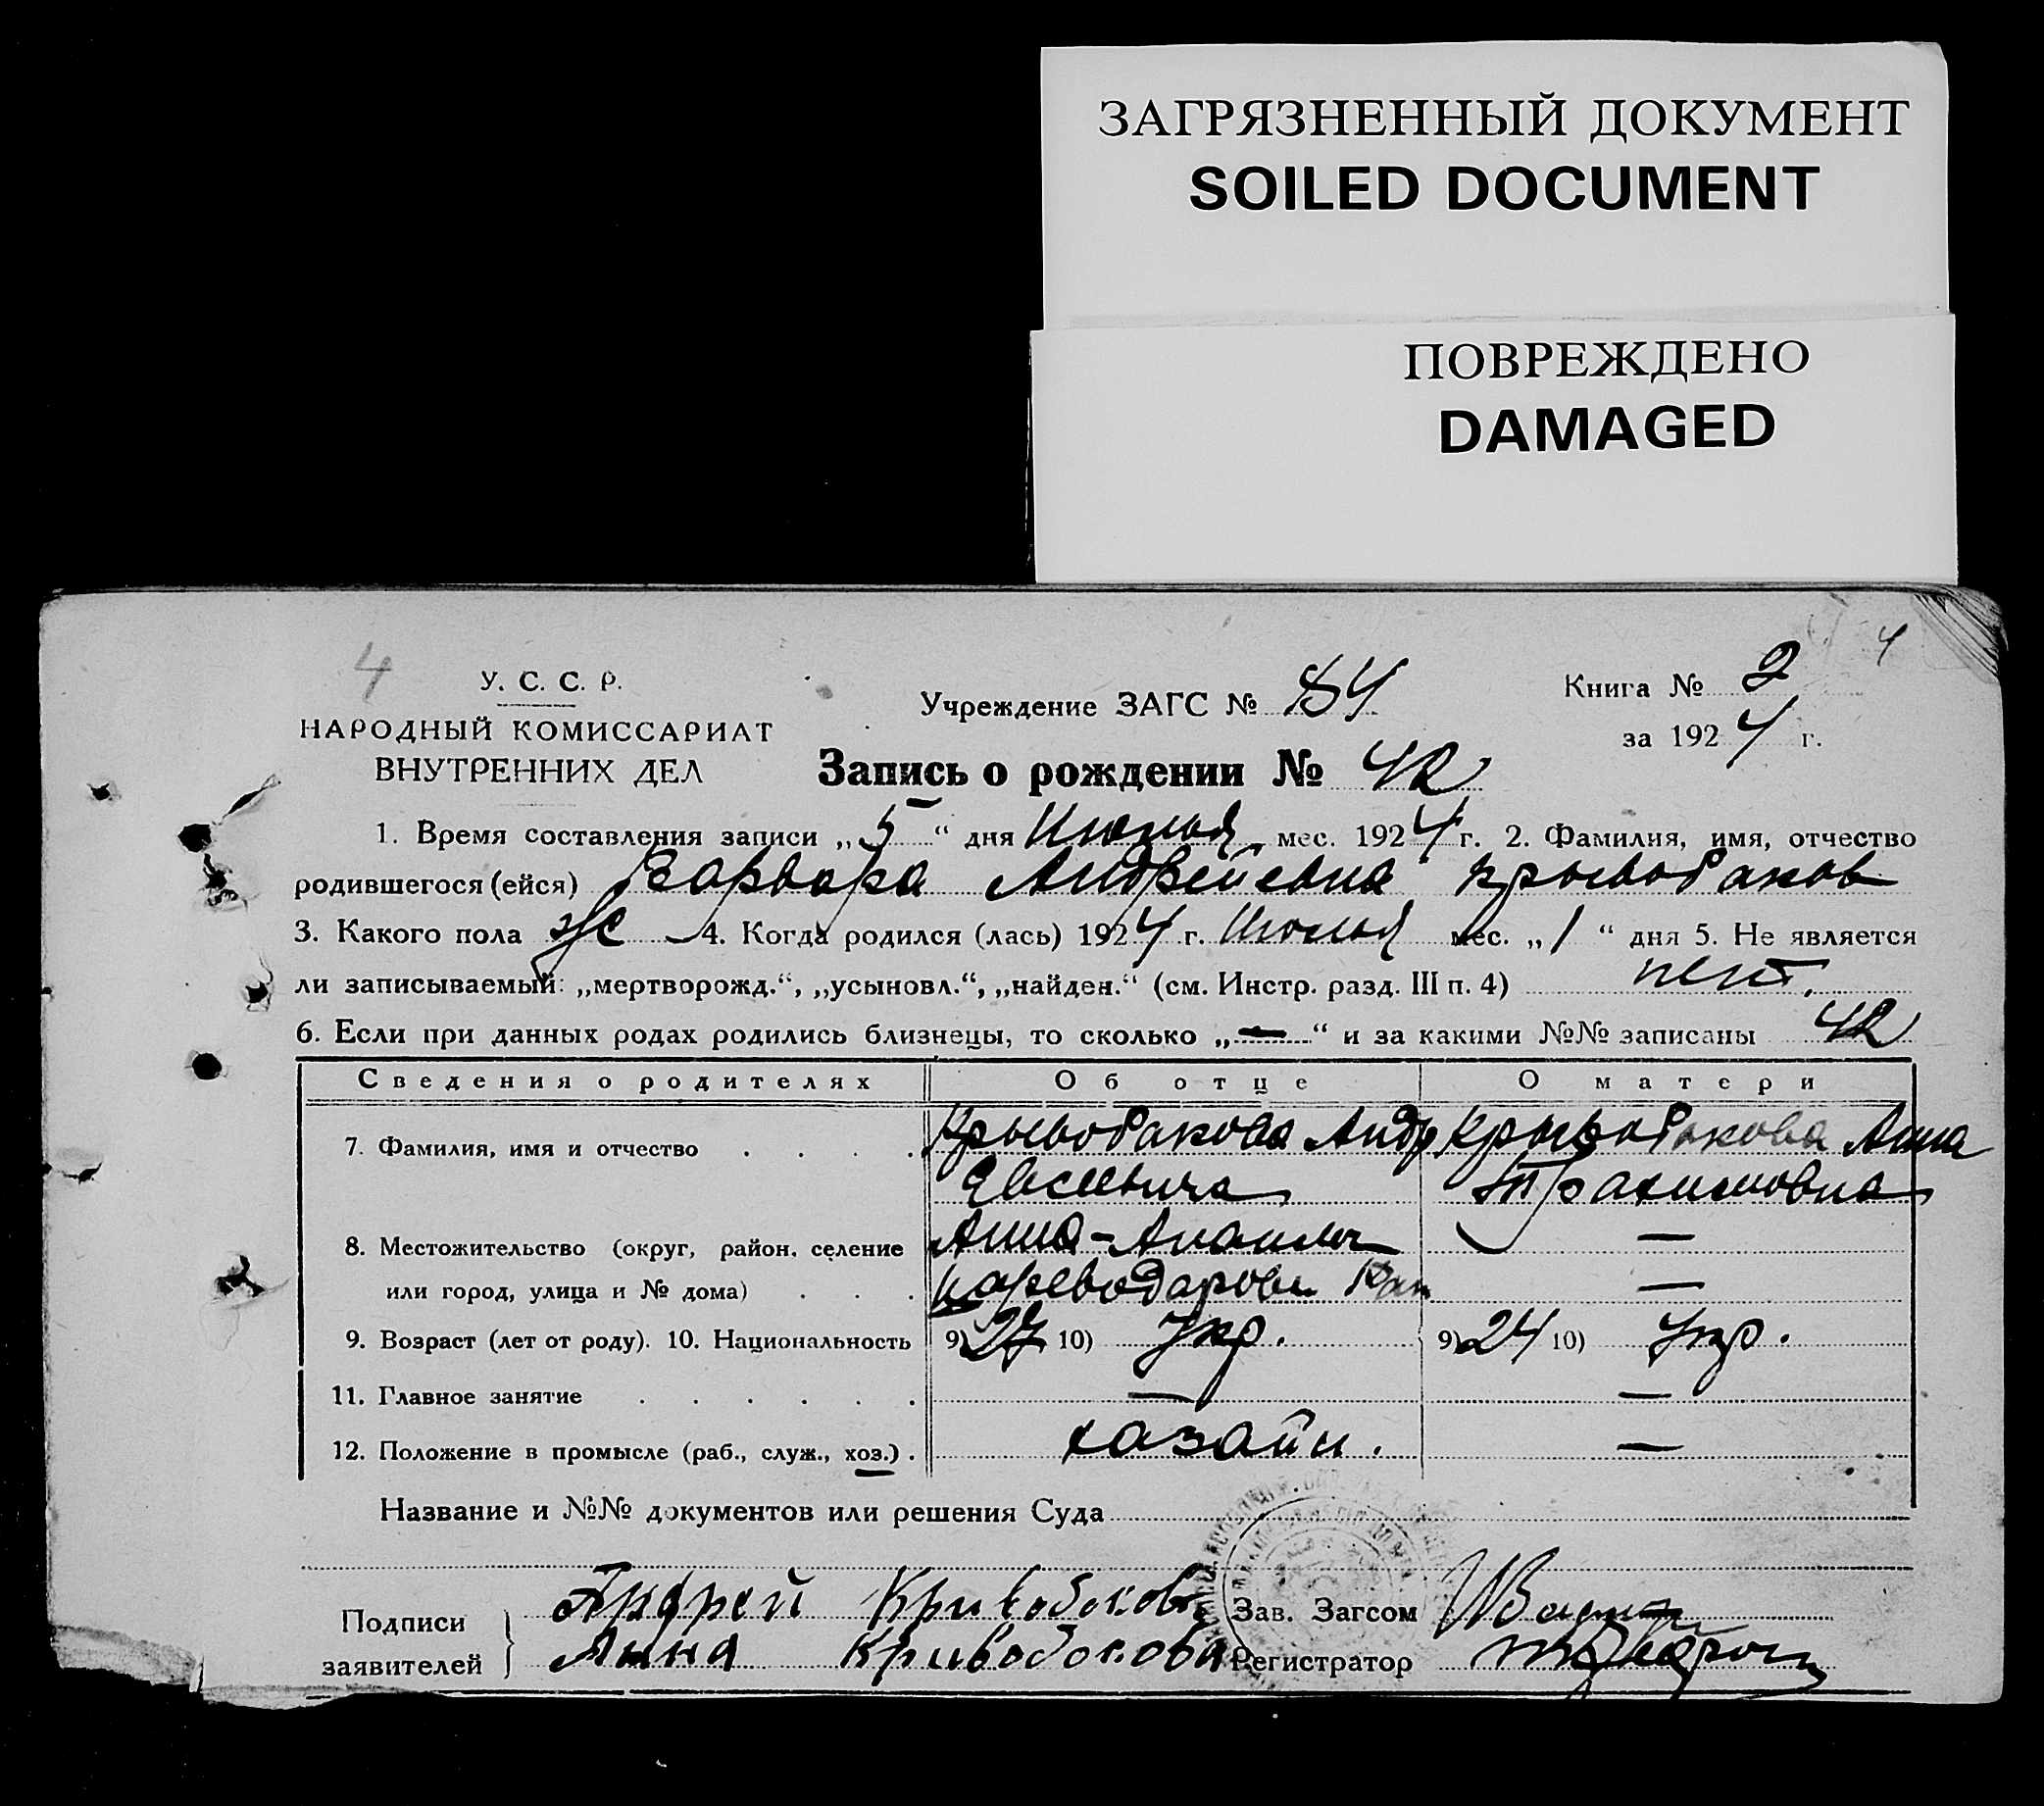 ЗАГРЯЗНЕННЫЙ ДОКУМЕНТ
SOILED DOCUMENT
ПОВРЕЖДЕНО
DAMAGED
4
4
У. С. С. Р.
НАРОДНЫЙ КОМИССАРИАТ
ВНУТРЕННИХ ДЕЛ
Учреждение ЗАГС № 84
Книга № 2
за 1924 г.
Запись о рождении № 42
1. Время составления записи „5“ дня Июлья мес. 1924 г. 2. Фамилия, имя, отчество
родившегося (ейся) Варвара Андрейевна Крывобаков
3. Какого пола ж 4. Когда родился (лась) 1924 г. Июлья мес. „1“ дня 5. Не является
ли записываемый: „мертворожд.“, „усыновл.“, „найден.“ (см. Инстр. разд. III п. 4) нет.
6. Если при данных родах родились близнецы, то сколько „—“ и за какими №№ записаны 42
Сведения о родителях Об отце О матери
7. Фамилия, имя и отчество Крывобакова Андр Крывобакова Анна
Евсеевича
8. Местожительство (округ, район, селение Анна- — 
или город, улица и № дома) —
9. Возраст (лет от роду). 10. Национальность 9) 27 10) Укр. 9) 24 10) Укр.
11. Главное занятие — —
12. Положение в промысле (раб., служ., хоз.) хазайн. —
Название и №№ документов или решения Суда
Подписи заявителей
Андрей Кривобоков Зав. Загсом
Анна Кривобокова Регистратор